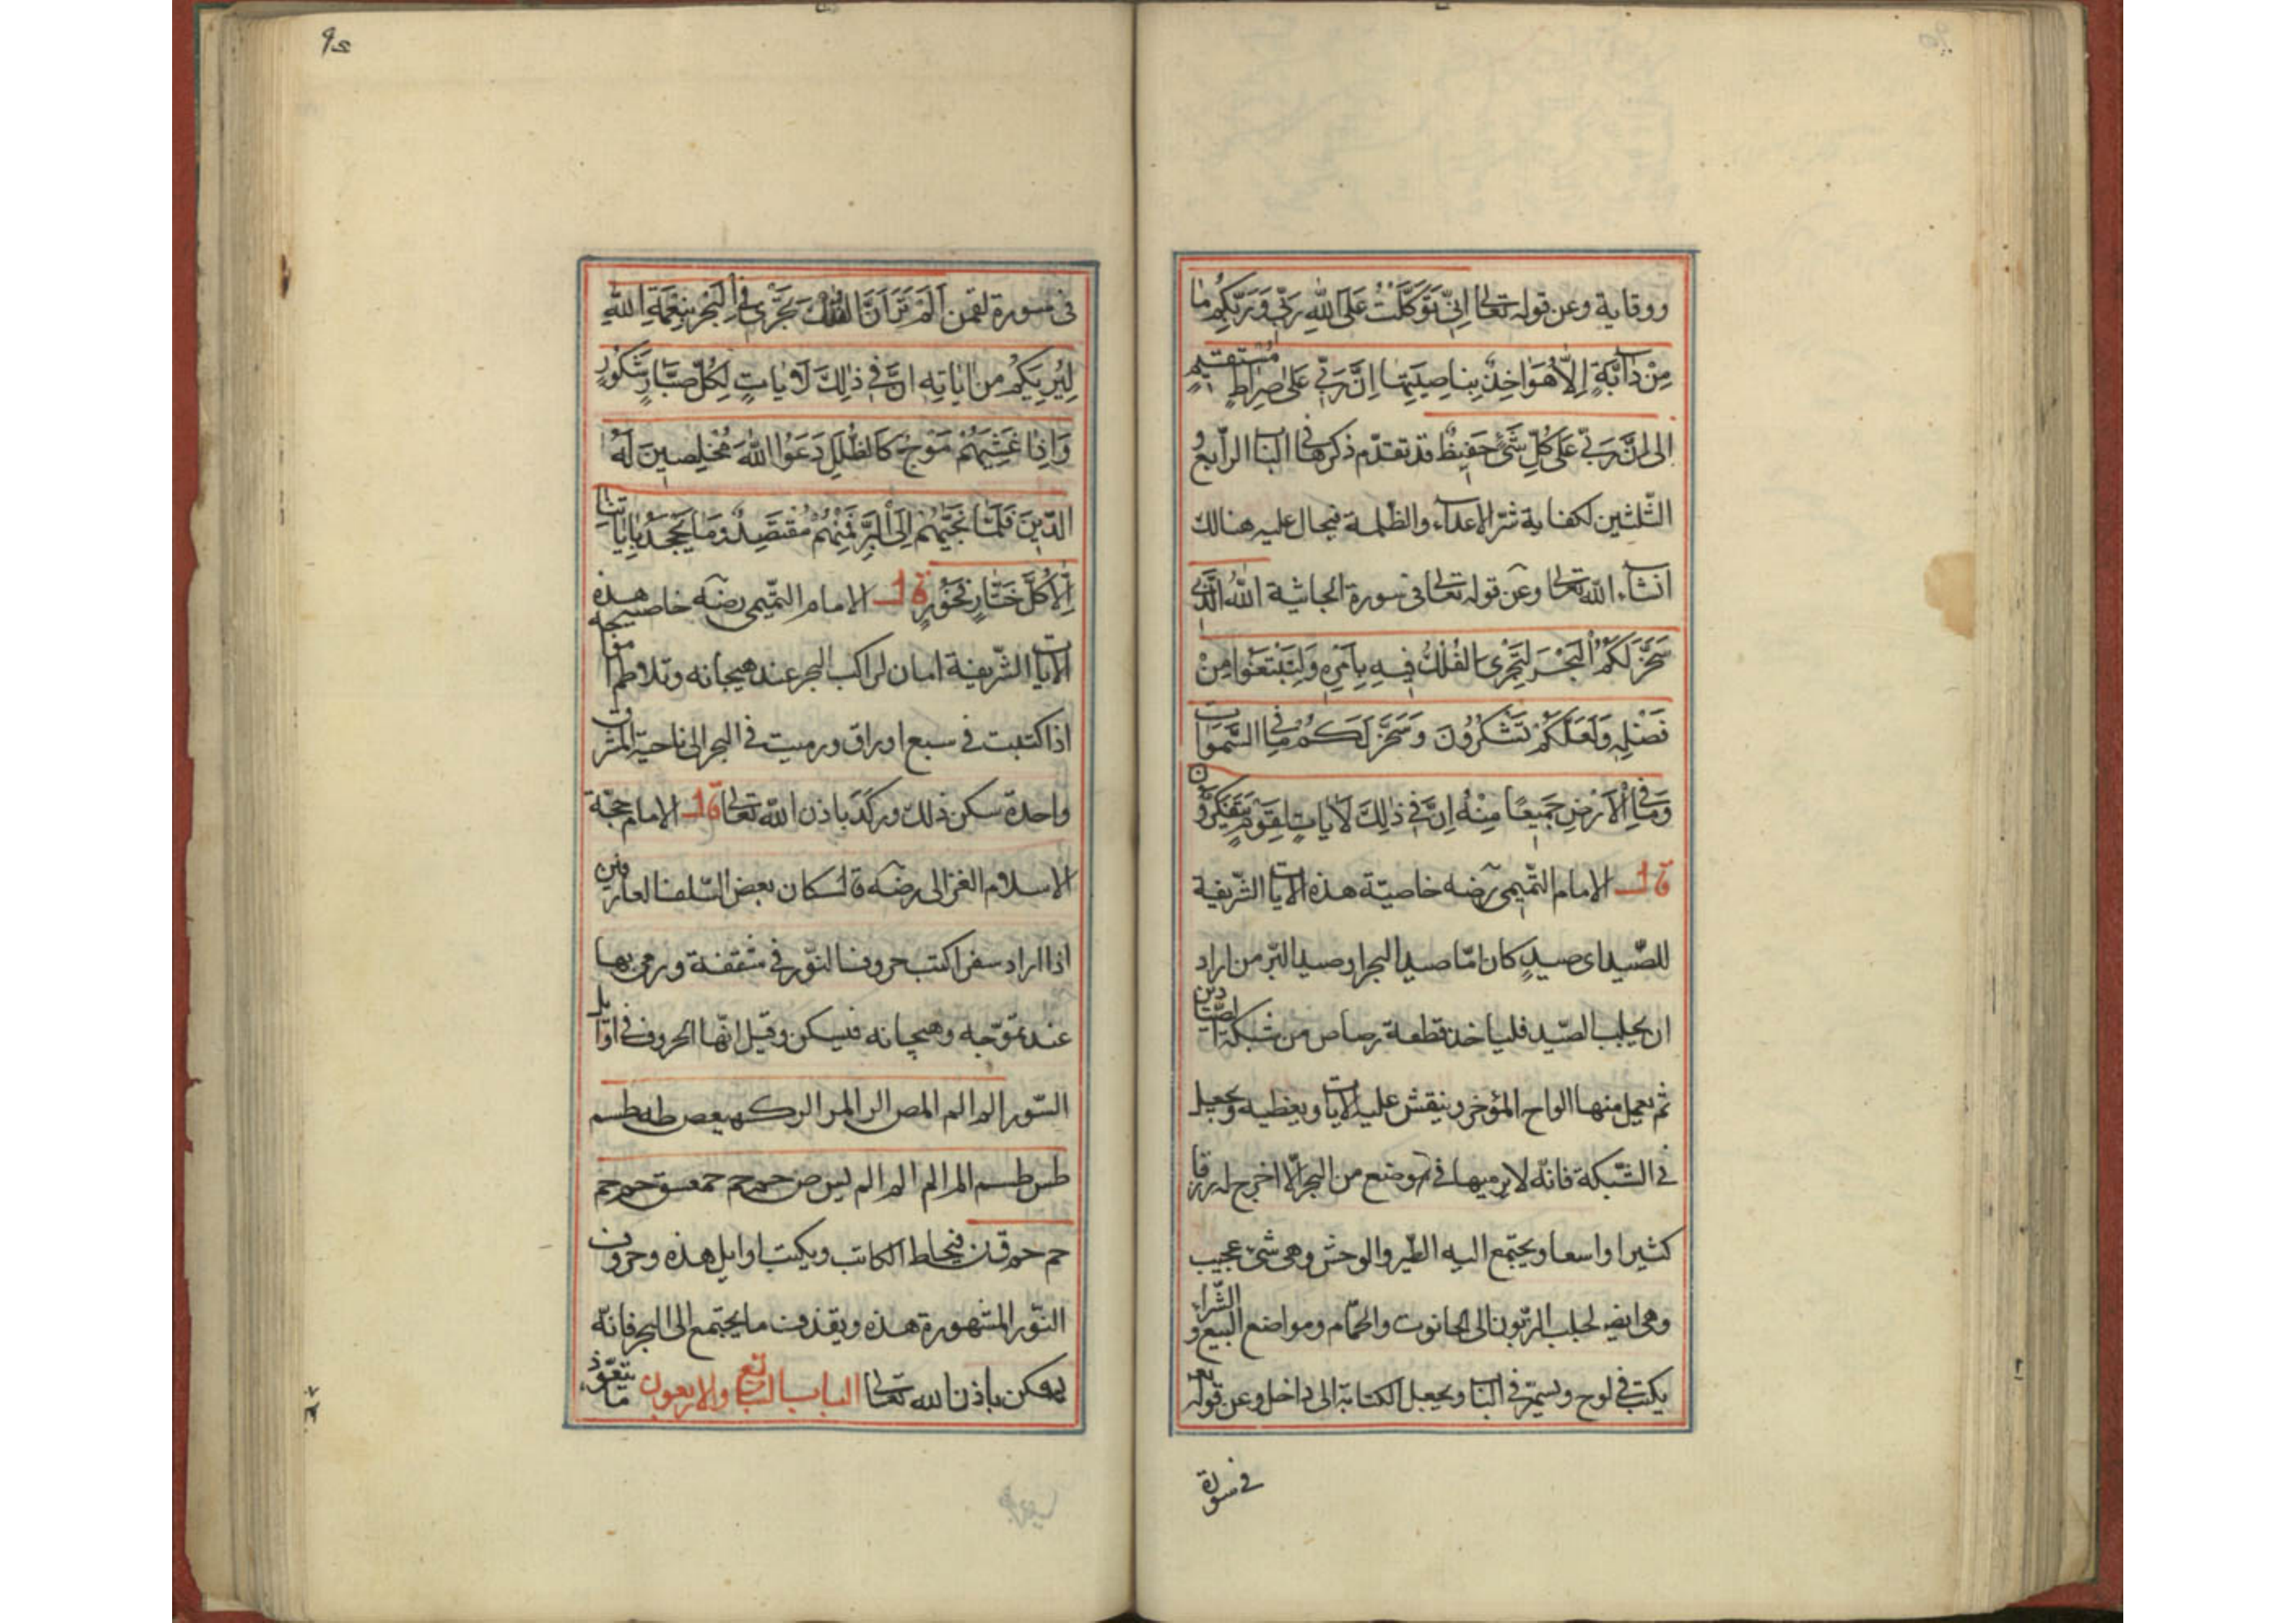 ووقاية وعن قوله تعالى اِنّي تَوَكَّلْتُ عَلَى اللّٰهِ رَبّي وَرَبِّكُمْ مَا
مِنْ دَابَّةٍ اِلَّا هُوَ اٰخِذٌ بِنَاصِيَتِهَا اِنَّ رَبّي عَلٰى صِرَاطٍ مُسْتَقيمٍ
الى اِنَّ رَبّي عَلٰى كُلِّ شَيْءٍ حَفيظٌ قد تقدّم ذكرها في الباب الرّابع و
الثّلثين لكفاية شرّ الاعداء والظّلمة فيحال عليه هنالك
انشاء اللّه تعالى وعن قوله تعالى في سورة الجاثية اَللّٰهُ الَّذي
سَخَّرَ لَكُمُ الْبَحْرَ لِتَجْرِىَ الْفُلْكُ فيهِ بِاَمْرِهِ وَلِتَبْتَغُوا مِنْ
فَضْلِهِ وَلَعَلَّكُمْ تَشْكُرُونَ وَسَخَّرَ لَكُمْ مَا فِي السَّمٰوَاتِ
وَمَا فِي الْاَرْضِ جَميعًا مِنْهُ اِنَّ في ذٰلِكَ لَاٰيَاتٍ لِقَوْمٍ يَتَفَكَّرُونَ
قال الامام التّميمى رضه خاصيّة هذه الايات الشّريفة
للصّيد اى صيدٍ كان امّا صيد البحر او صيد البرّ من اراد
ان يجلب الصّيد فلياخذ قطعة رصاص من شبكة الصّيادين
ثم يعمل منها الواح المؤخر وينقش عليه الايات ويغطيه ويجعل
في الشّبكة فانّه لا يرميها في موضع من البحر الّا اخرج له رزقا
كثيرا واسعا ويجتمع اليه الطّير والوحش وهى شئ عجيب
وهى ايضا لجلب الزّبون الى الحانوت والحمّام ومواضع البيع و الشّراء
يكتب في لوح ويسمّر في الباب ويجعل الكتابة الى داخل وعن قوله تعا
في سورة
٩٤
في سورة لقمن اَلَمْ تَرَ اَنَّ الْفُلْكَ تَجْري فِي الْبَحْرِ بِنِعْمَةِ اللّٰهِ
لِيُرِيَكُمْ مِنْ اٰيَاتِهِ اِنَّ في ذٰلِكَ لَاٰيَاتٍ لِكُلِّ صَبَّارٍ شَكُورٍ
وَاِذَا غَشِيَهُمْ مَوْجٌ كَالظُّلَلِ دَعَوُا اللّٰهَ مُخْلِصينَ لَهُ
الدّينَ فَلَمَّا نَجّٰيهُمْ اِلَى الْبَرِّ فَمِنْهُمْ مُقْتَصِدٌ وَمَا يَجْحَدُ بِاٰيَاتِنَا
اِلَّا كُلُّ خَتَّارٍ كَفُورٍ قال الامام التّميمى رضه خاصية هذه
الايات الشّريفة امان لراكب البحر عند هيجانه وتلاطم امواجه
اذا كتبت في سبع اوراق ورميت في البحر الى ناحية المشرق
واحدة سكن ذلك وركد باذن اللّه تعالى قال الامام حجّة
الاسلام الغزالى رضه قال كان بعض السّلف العارفين
اذا اراد سفرا كتب حروف النّور في شقفة ورمى بها
عند تموّجه وهيجانه فيسكن وقيل انّها الحروف في اوايل
السّور الم الم المص الر المر الر كهيعص طه طسم
طس طسم الم الم الم الم يس ص حم حم حمعسق حم حم
حم حم ق ن فيحتاط الكاتب ويكتب اوايل هذه وحروف
النّور المشهورة هذه ويقذف ما يجتمع الى البحر فانّه
يسكن باذن الله تعالى الباب التاسع والاربعون ما يتعوّذ